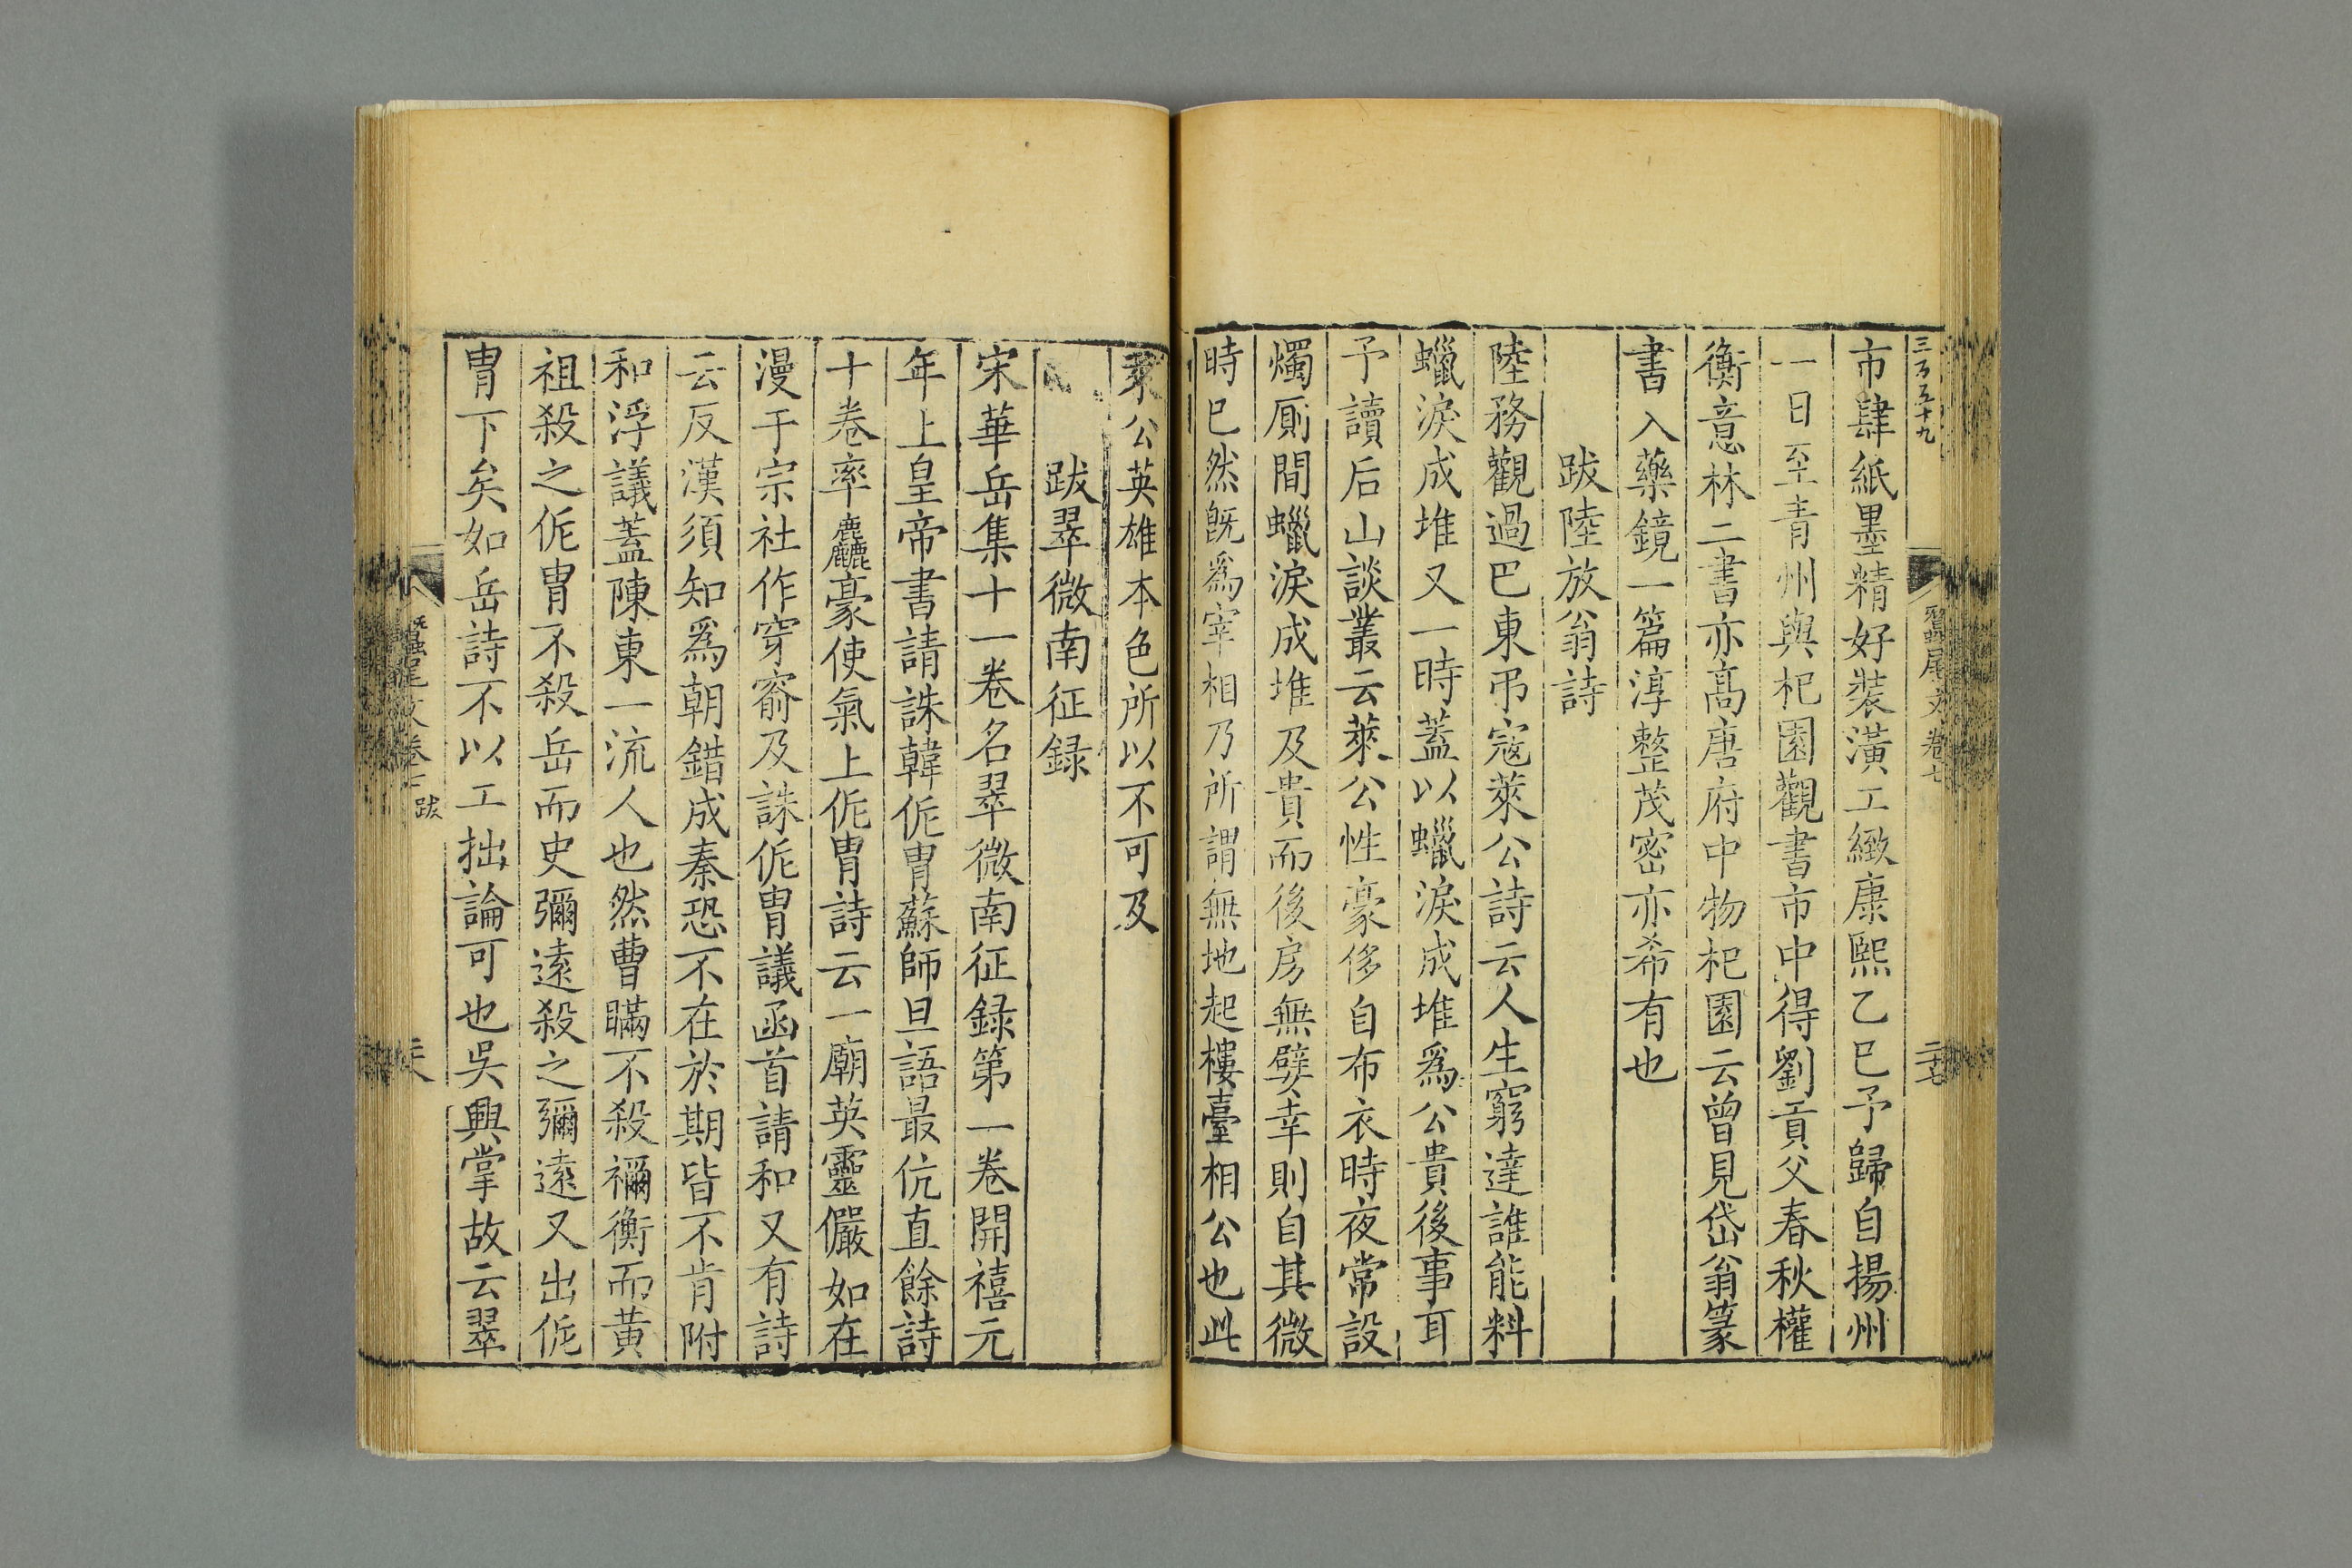 三百五十九
蠶尾文 卷七
二十七
市肆紙墨精好裝潢工緻康熙乙巳予歸自揚州
一日至青州與杞園觀書市中得劉貢父春秋權
衡意林二書亦髙唐府中物杞園云曾見岱翁篆
書入藥鏡一篇淳整茂密亦希有也
跋陸放翁詩
陸務觀過巴東弔寇萊公詩云人生窮達誰能料
蠟淚成堆又一時蓋以蠟淚成堆爲公貴後事耳
予讀后山談叢云萊公性豪侈自布衣時夜常設
燭厠間蠟淚成堆及貴而後房無嬖幸則自其微
時巳然旣爲宰相乃所謂無地起樓臺相公也此
萊公英雄本色所以不可及
跋翠微南征録
宋華岳集十一卷名翠微南征録第一卷開禧元
年上皇帝書請誅韓侂胄蘇師旦語最伉直餘詩
十卷率麤豪使氣上侂胄詩云一廟英靈儼如在
漫于宗社作穿窬及誅侂胄議函首請和又有詩
云反漢須知爲朝錯成秦恐不在於期皆不肯附
和浮議蓋陳東一流人也然曹瞞不殺禰衡而黄
祖殺之侂胄不殺岳而史彌逺殺之彌逺又出侂
胄下矣如岳詩不以工拙論可也吳興掌故云翠
蠶尾文 卷七 跋